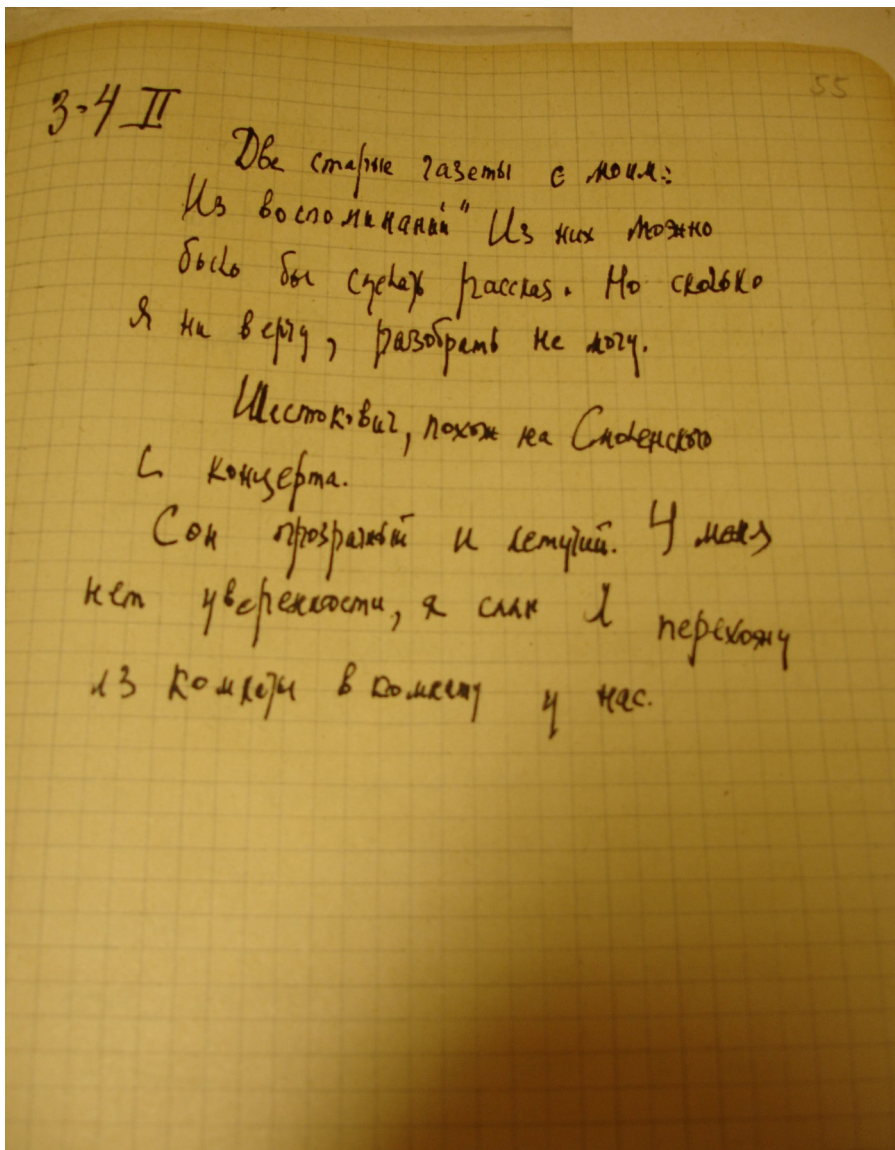 55
3-4 II
Две старые газеты с моим:
Из воспоминаний" Из них можно
было бы сделать рассказ. Но сколько
я ни верчу, разобрать не могу.
Шестокович, похож на Смоленского
с концерта.
Сон прозрачный и летучий. У меня
нет уверенности, я спал я перехожу
из комнаты в комнату у нас.